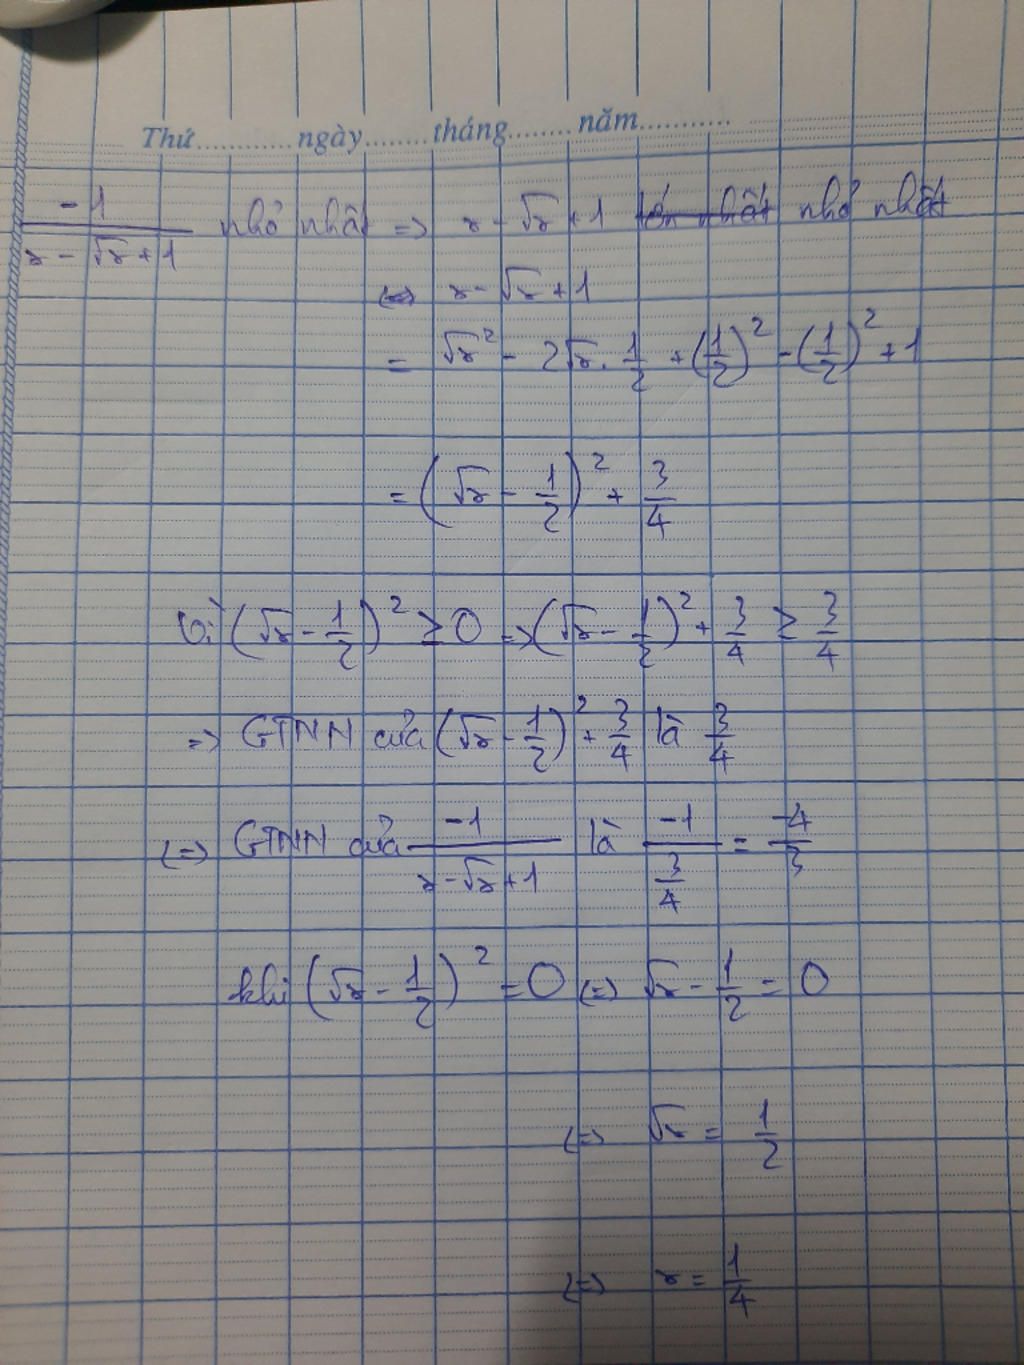 Thứ............ngày........tháng........năm...........
-1/(x - √x + 1) nhỏ nhất => x - √x + 1 lớn nhất nhỏ nhất
<=> x - √x + 1
= √x² - 2√x . 1/2 + (1/2)² - (1/2)² + 1
= (√x - 1/2)² + 3/4
Vì (√x - 1/2)² ≥ 0 => (√x - 1/2)² + 3/4 ≥ 3/4
=> GTNN của (√x - 1/2)² + 3/4 là 3/4
<=> GTNN của -1/(x - √x + 1) là -1/(3/4) = -4/3
khi (√x - 1/2)² = 0 <=> √x - 1/2 = 0
<=> √x = 1/2
<=> x = 1/4